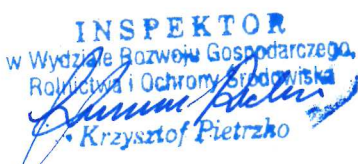 INSPEKTOR
w Wydziale Rozwoju Gospodarczego,
Rolnictwa i Ochrony Środowiska
Krzysztof Pietrzko